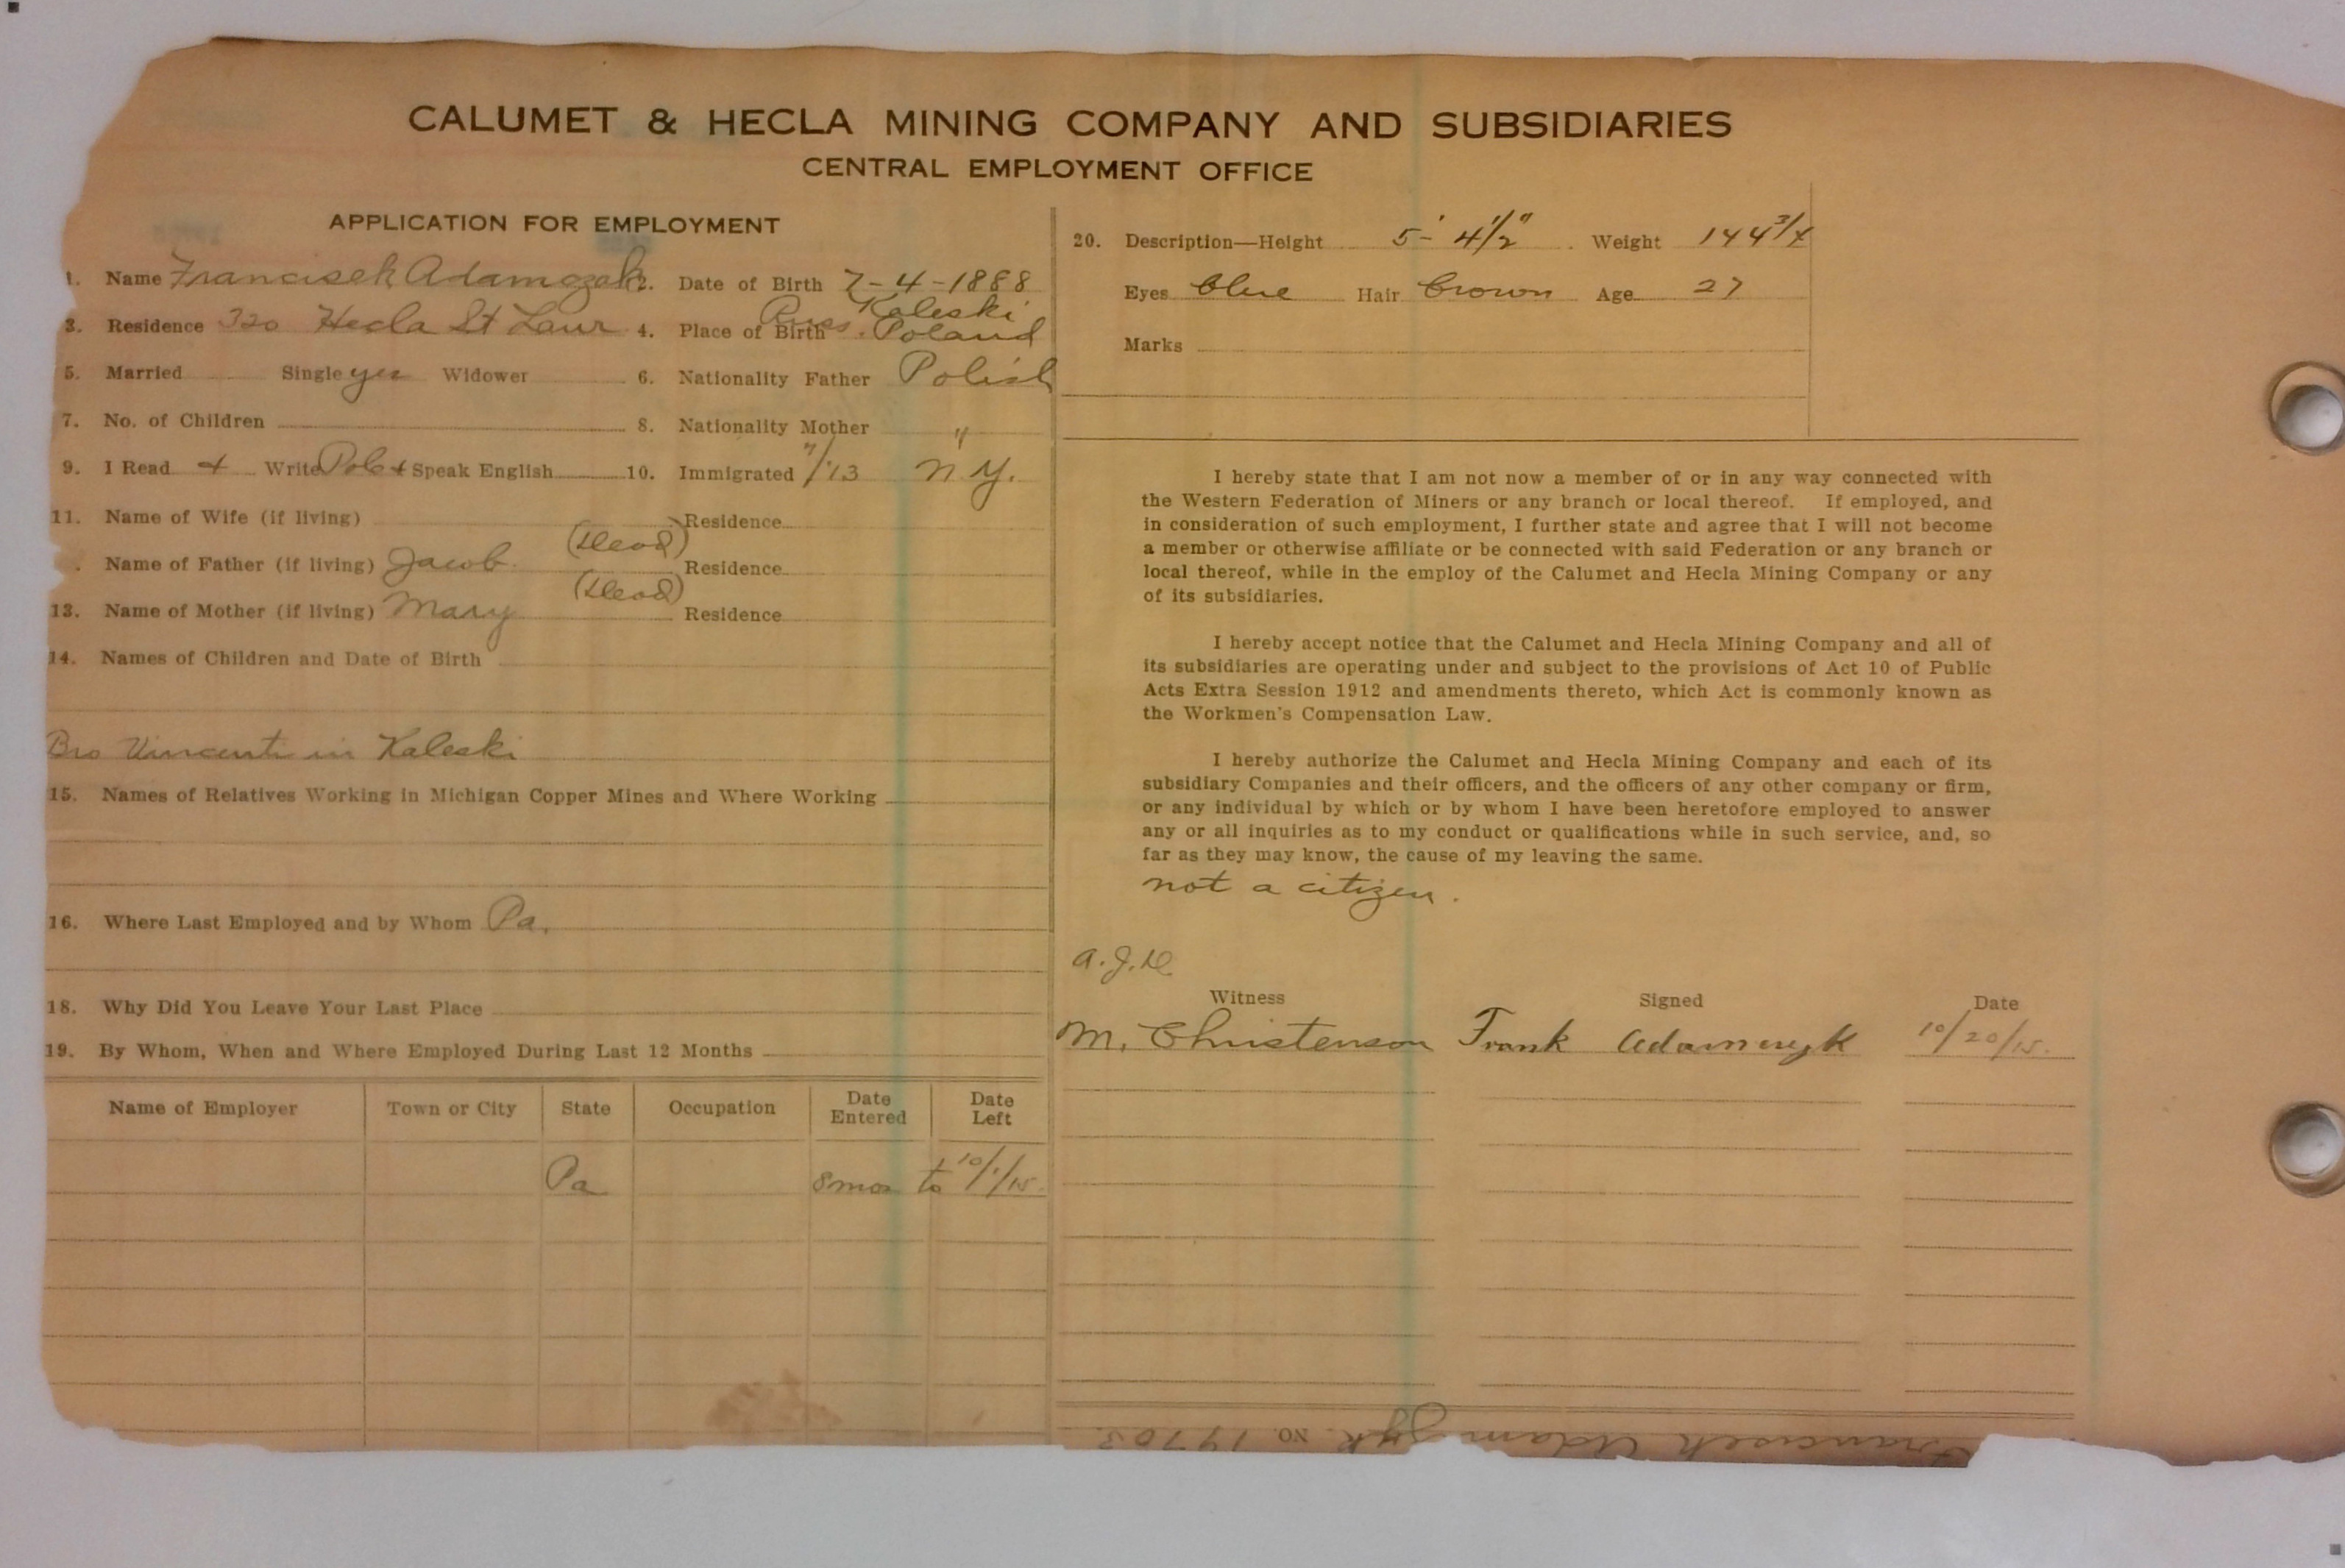 CALUMET & HECLA MINING COMPANY AND SUBSIDIARIES
CENTRAL EMPLOYMENT OFFICE
APPLICATION FOR EMPLOYMENT
1. Name Francisek Adamczak 2. Date of Birth 7-4-1888
3. Residence 320 Hecla St Laur 4. Place of Birth Russ. Poland Kaleski
5. Married Single yes Widower 6. Nationality Father Polish
7. No. of Children 8. Nationality Mother "
9. I Read + Write Pol + Speak English 10. Immigrated 7/13 N.Y.
11. Name of Wife (if living) Residence
. Name of Father (if living) Jacob (Dead) Residence
13. Name of Mother (if living) Mary (Dead) Residence
14. Names of Children and Date of Birth
Bro Vincenti in Kaleski
15. Names of Relatives Working in Michigan Copper Mines and Where Working
16. Where Last Employed and by Whom Pa.
18. Why Did You Leave Your Last Place
19. By Whom, When and Where Employed During Last 12 Months
Name of Employer Town or City State Occupation Date Entered Date Left
Pa 8 mos to 10/1/15
20. Description—Height 5'-4 1/2" Weight 144 3/4
Eyes blue Hair brown Age 27
Marks
I hereby state that I am not now a member of or in any way connected with
the Western Federation of Miners or any branch or local thereof. If employed, and
in consideration of such employment, I further state and agree that I will not become
a member or otherwise affiliate or be connected with said Federation or any branch or
local thereof, while in the employ of the Calumet and Hecla Mining Company or any
of its subsidiaries.
I hereby accept notice that the Calumet and Hecla Mining Company and all of
its subsidiaries are operating under and subject to the provisions of Act 10 of Public
Acts Extra Session 1912 and amendments thereto, which Act is commonly known as
the Workmen's Compensation Law.
I hereby authorize the Calumet and Hecla Mining Company and each of its
subsidiary Companies and their officers, and the officers of any other company or firm,
or any individual by which or by whom I have been heretofore employed to answer
any or all inquiries as to my conduct or qualifications while in such service, and, so
far as they may know, the cause of my leaving the same.
not a citizen.
Witness Signed Date
M. Christenson Frank Adamczyk 10/20/15.
Francisek Adamczyk NO. 19703